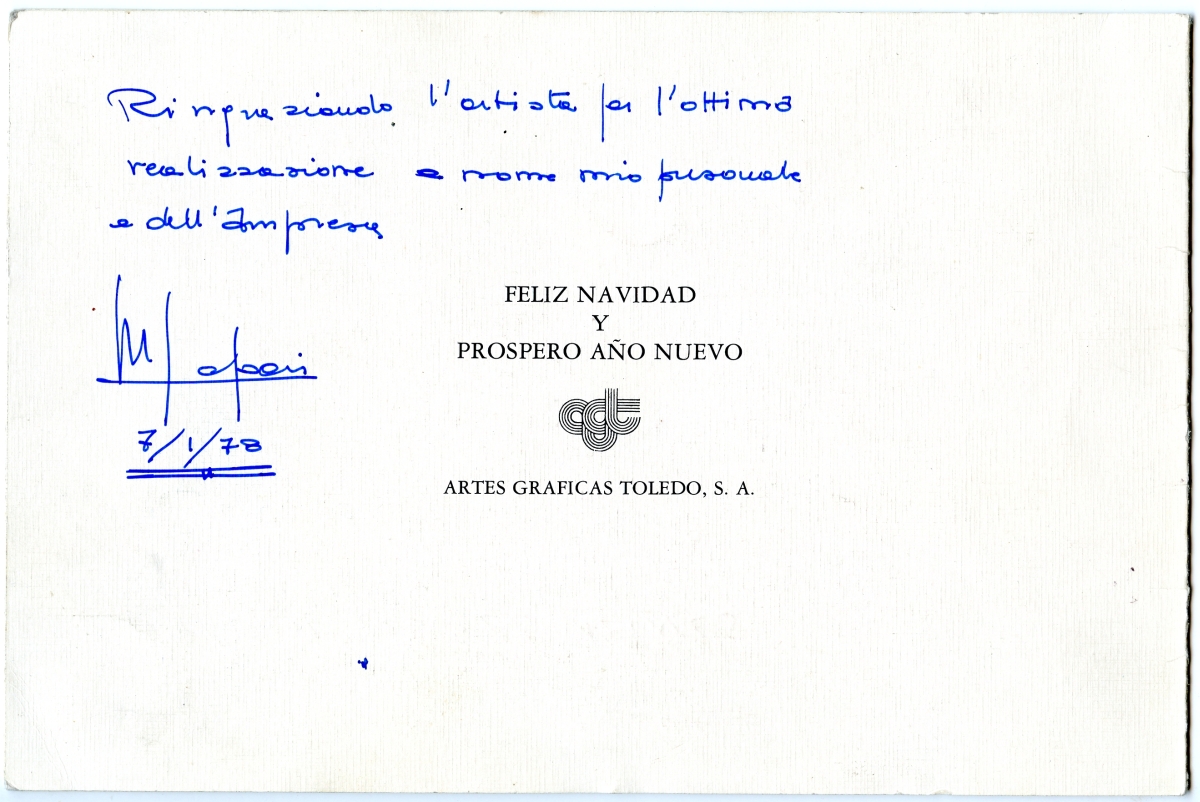 Ringraziando l'artista per l'ottima
realizzazione a nome mio personale
e dell'Impresa
7/1/78
FELIZ NAVIDAD
Y
PROSPERO AÑO NUEVO
agt
ARTES GRAFICAS TOLEDO, S. A.